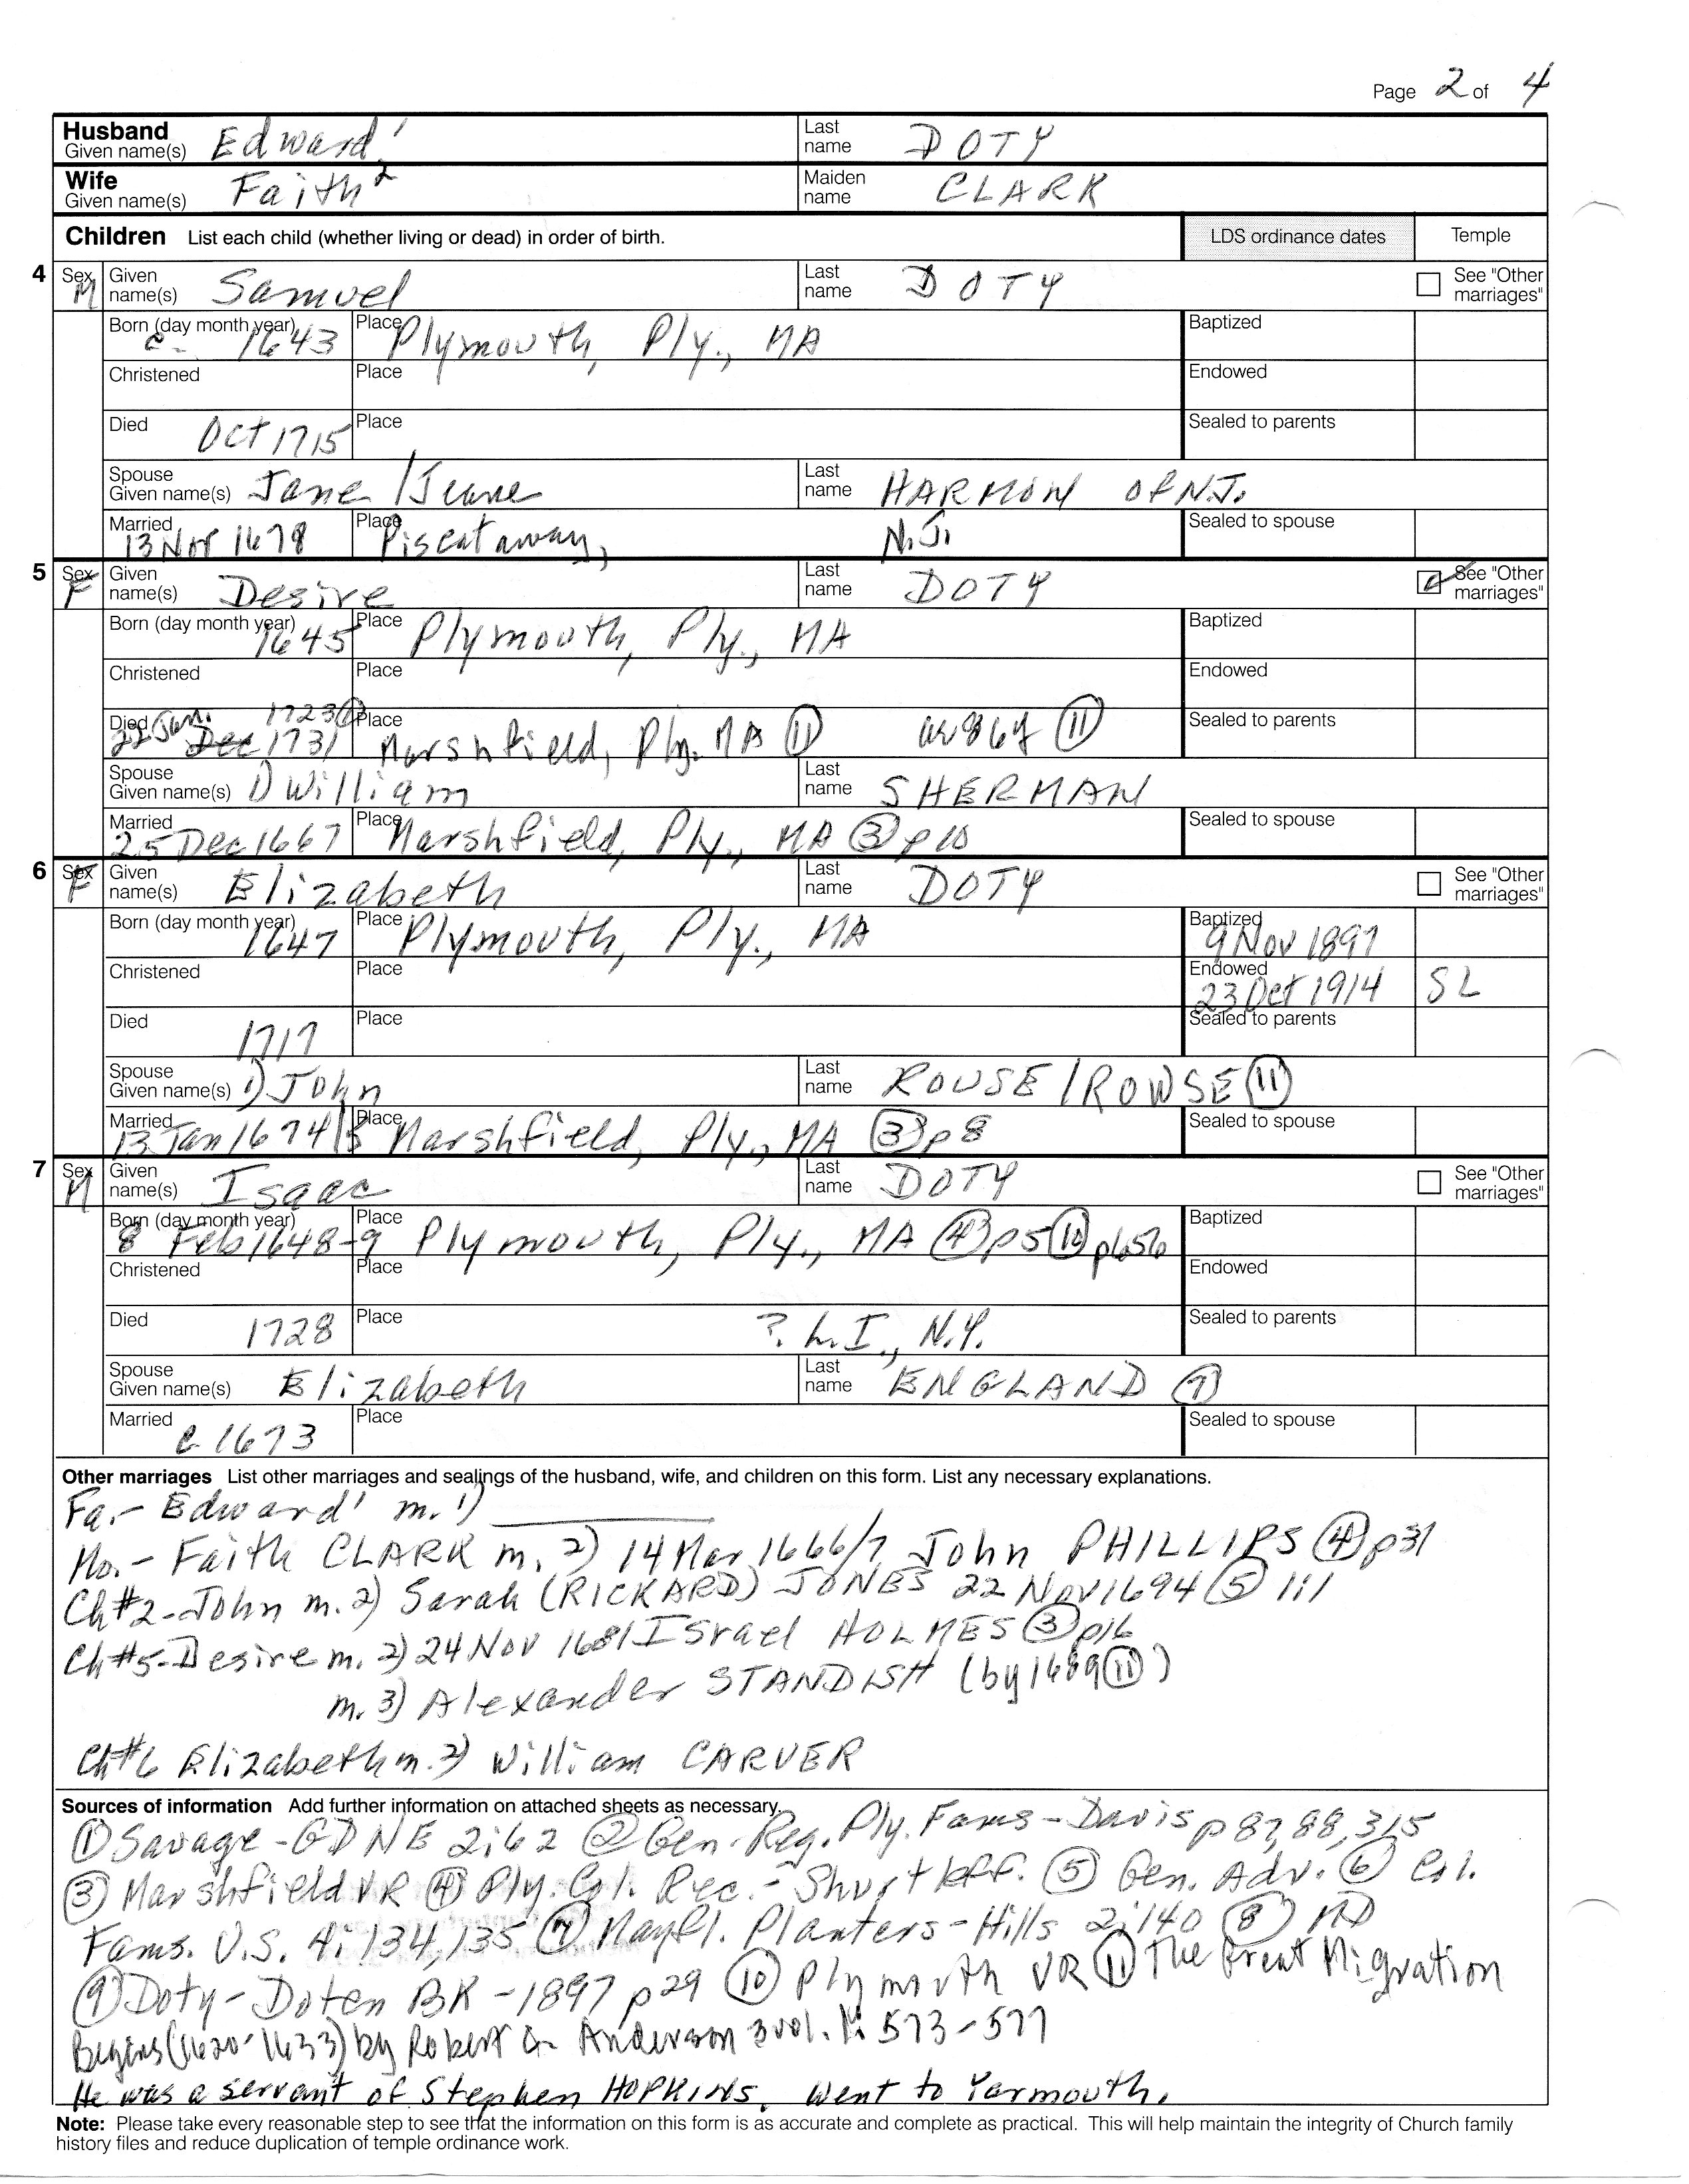 Page 2 of 4
Husband Given name(s) Edward¹ Last name DOTY
Wife Given name(s) Faith² Maiden name CLARK
Children List each child (whether living or dead) in order of birth. LDS ordinance dates Temple
4 Sex M Given name(s) Samuel Last name DOTY See "Other marriages"
Born (day month year) c. 1643 Place Plymouth, Ply., MA Baptized
Christened Place Endowed
Died Oct 1715 Place Sealed to parents
Spouse Given name(s) Jane / Jeane Last name HARMON of N.J.
Married 13 Nov 1678 Place Piscataway, N.J. Sealed to spouse
5 Sex F Given name(s) Desire Last name DOTY See "Other marriages"
Born (day month year) 1645 Place Plymouth, Ply., MA Baptized
Christened Place Endowed
Died 22 Jan. 1723 Dec 1731 Place Marshfield, Ply. MA ⑪ ae 86y ⑪ Sealed to parents
Spouse Given name(s) 1) William Last name SHERMAN
Married 25 Dec 1667 Place Marshfield, Ply., MA ③ p 10 Sealed to spouse
6 Sex F Given name(s) Elizabeth Last name DOTY See "Other marriages"
Born (day month year) 1647 Place Plymouth, Ply., MA Baptized 9 Nov 1897
Christened Place Endowed 23 Oct 1914 SL
Died 1717 Place Sealed to parents
Spouse Given name(s) 1) John Last name ROUSE / ROWSE ⑪
Married 13 Jan 1674/5 Place Marshfield, Ply., MA ③ p 8 Sealed to spouse
7 Sex M Given name(s) Isaac Last name DOTY See "Other marriages"
Born (day month year) 8 Feb 1648-9 Place Plymouth, Ply., MA ④ p5 ⑩ p656 Baptized
Christened Place Endowed
Died 1728 Place ? L.I., N.Y. Sealed to parents
Spouse Given name(s) Elizabeth Last name ENGLAND ⑦
Married c 1673 Place Sealed to spouse
Other marriages List other marriages and sealings of the husband, wife, and children on this form. List any necessary explanations.
Fa.- Edward¹ m. 1) ________
Mo.- Faith CLARK m. 2) 14 Mar 1666/7 John PHILLIPS ④ p31
Ch#2-John m. 2) Sarah (RICKARD) JONES 22 Nov 1694 ⑤ 1:1
Ch#5-Desire m. 2) 24 Nov 1681 Israel HOLMES ③ p16
m. 3) Alexander STANDISH (by 1689 ⑪)
Ch#6 Elizabeth m. 2) William CARVER
Sources of information Add further information on attached sheets as necessary.
① Savage-GDNE 2:62 ② Gen. Reg. Ply. Fams - Davis p 87, 88, 315
③ Marshfield VR ④ Ply. Col. Rec. - Shurtleff. ⑤ Gen. Adv. ⑥ Col.
Fams. U.S. 4:134,135 ⑦ Mayfl. Planters - Hills 2:140 ⑧ MD
⑨ Doty-Doten BK - 1897 p29 ⑩ Plymouth VR ⑪ The Great Migration
Begins (1620-1633) by Robert C. Anderson 3 vol. 1: 573-577
He was a servant of Stephen HOPKINS. Went to Yarmouth.
Note: Please take every reasonable step to see that the information on this form is as accurate and complete as practical. This will help maintain the integrity of Church family
history files and reduce duplication of temple ordinance work.